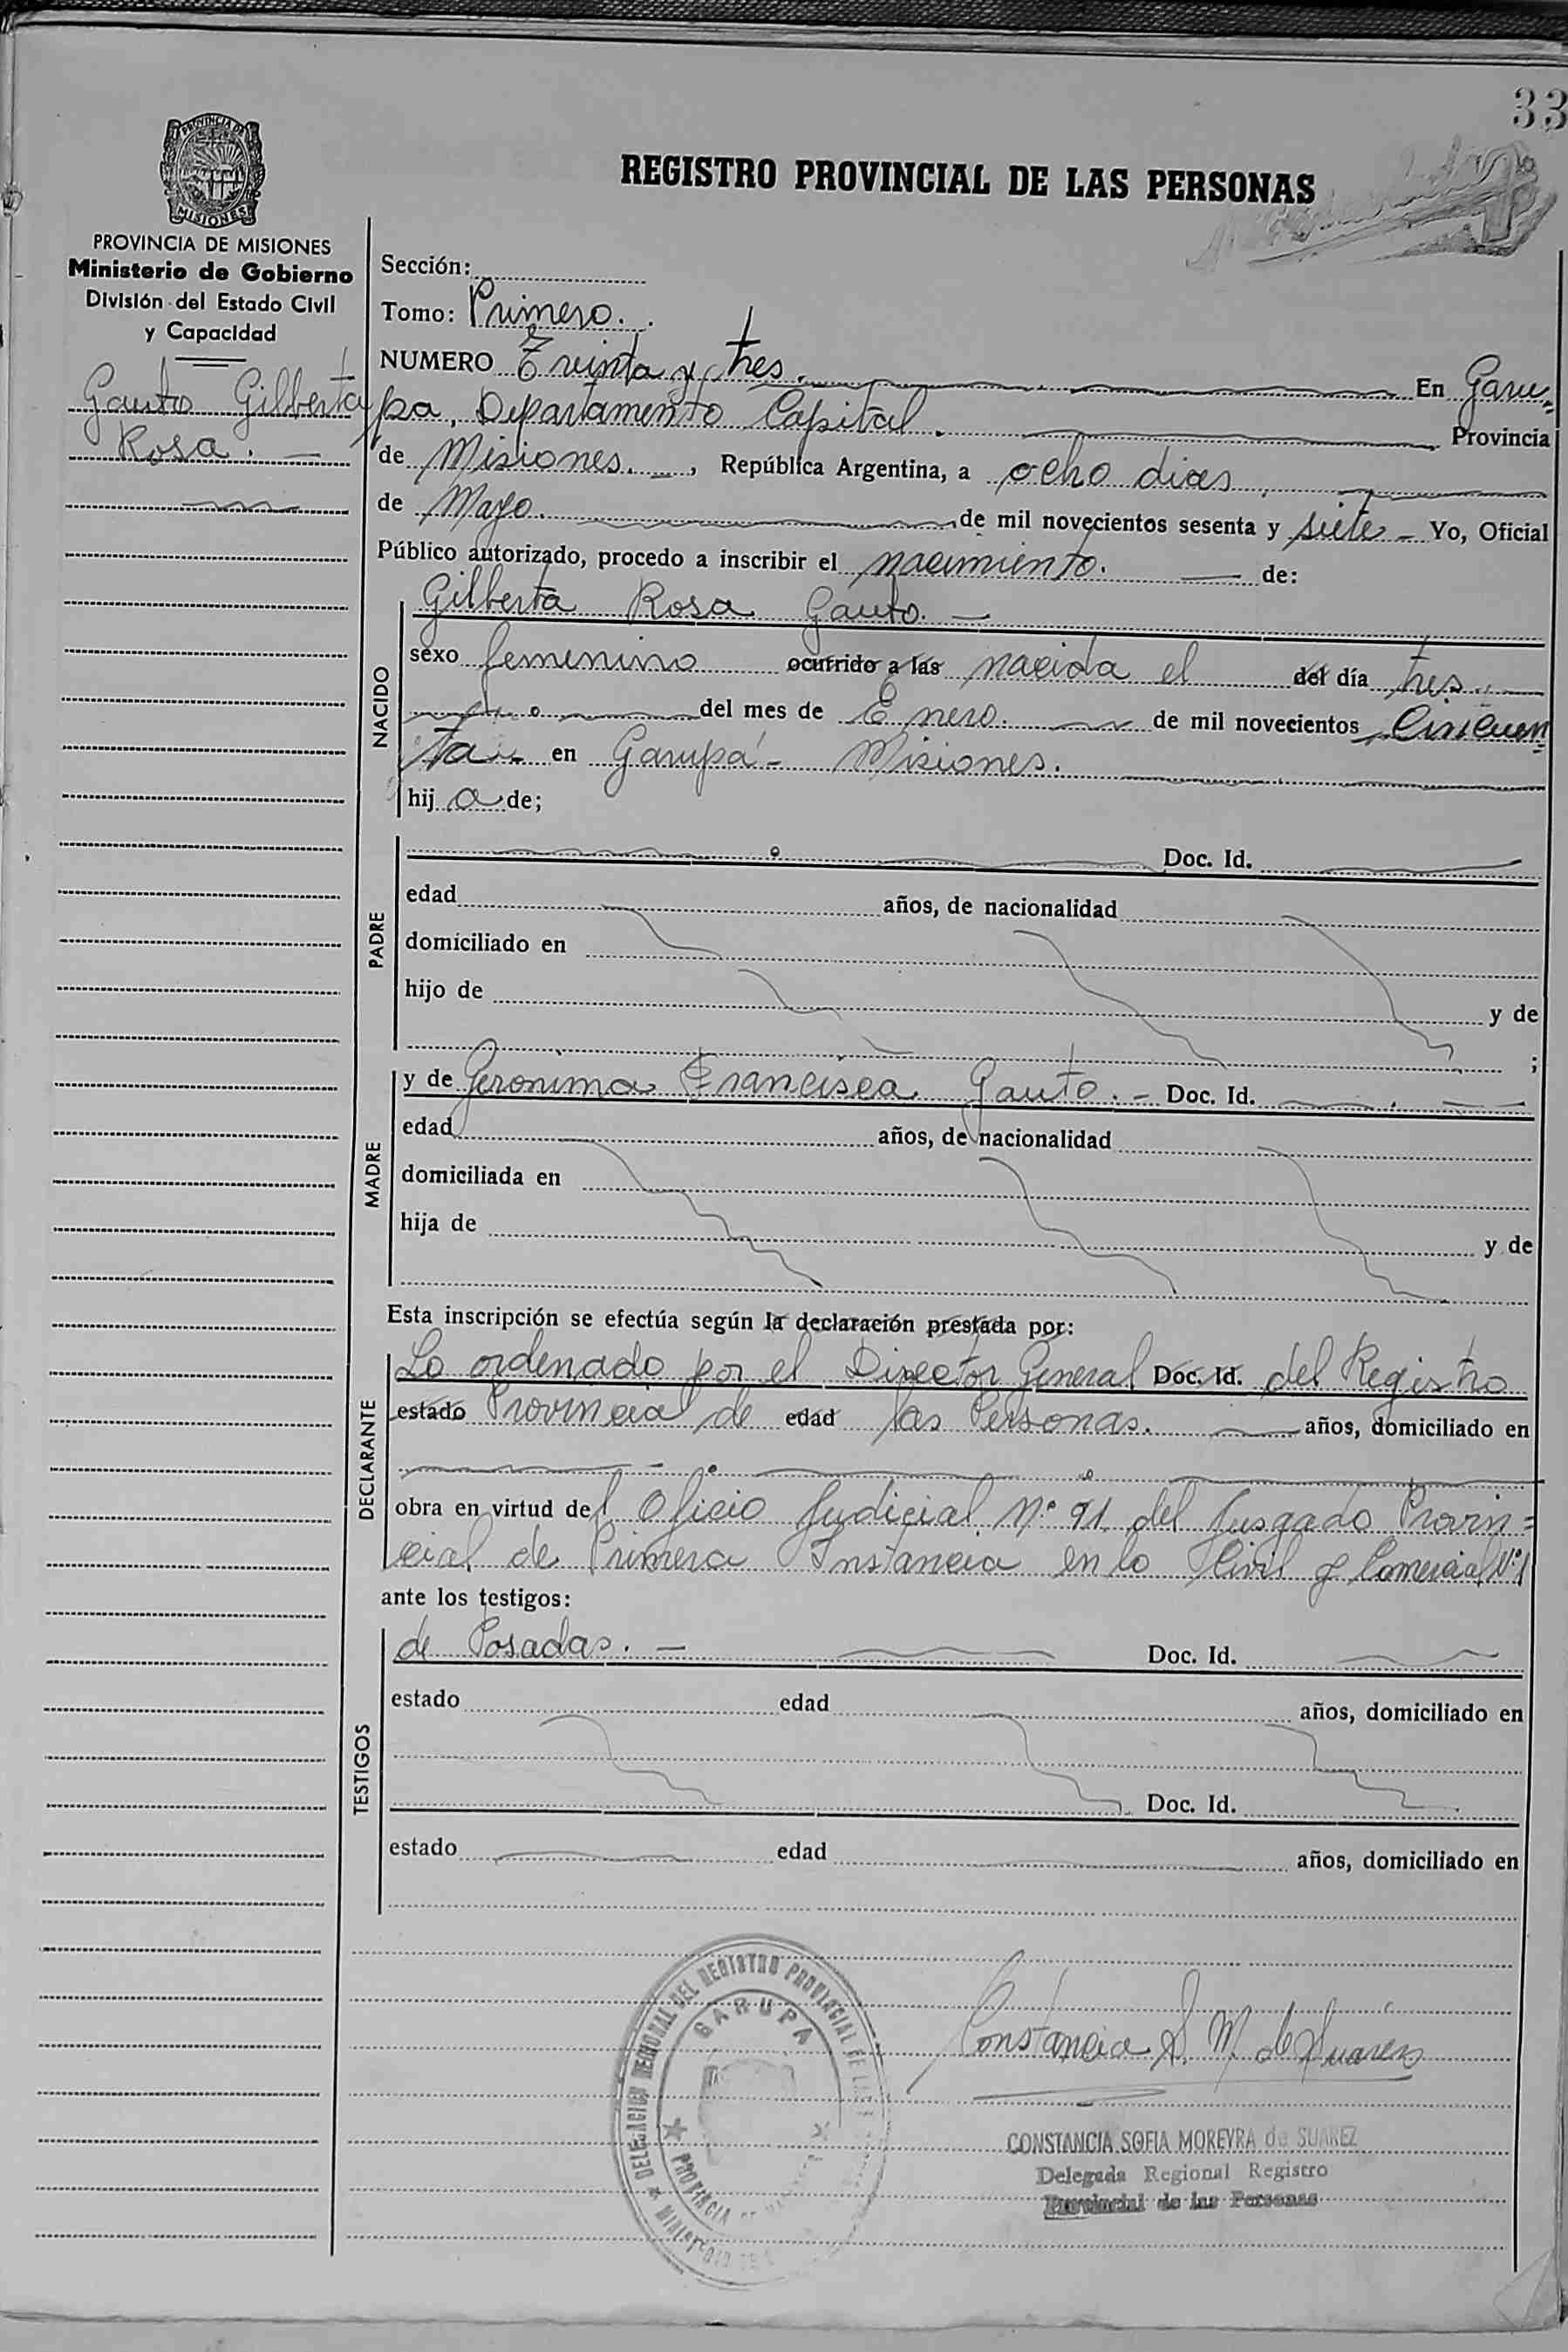 33
REGISTRO PROVINCIAL DE LAS PERSONAS
PROVINCIA DE MISIONES
Ministerio de Gobierno
División del Estado Civil
y Capacidad
Gauto Gilberta
Rosa.
Sección:
Tomo: Primero.
NUMERO Treinta y tres. En Garu-
pa, Departamento Capital. Provincia
de Misiones. , República Argentina, a ocho dias
de Mayo. de mil novecientos sesenta y siete - Yo, Oficial
Público autorizado, procedo a inscribir el nacimiento. de:
Gilberta Rosa Gauto. -
NACIDO
sexo femenino ocurrido a las nacida el del día tres
del mes de Enero. de mil novecientos Cincuen
ta - en Garupá - Misiones.
hij a de;
PADRE
Doc. Id.
edad años, de nacionalidad
domiciliado en
hijo de y de
;
MADRE
y de Geronima Francisca Gauto. - Doc. Id.
edad años, de nacionalidad
domiciliada en
hija de y de
Esta inscripción se efectúa según la declaración prestada por:
DECLARANTE
Lo ordenado por el Director General Doc. Id. del Registro
estado Provincial de edad las Personas. años, domiciliado en
obra en virtud del Oficio Judicial Nº 91 del Jusgado Provin=
cial de Primera Instancia en lo Civil y Comercial Nº1
ante los testigos:
TESTIGOS
de Posadas. - Doc. Id.
estado edad años, domiciliado en
Doc. Id.
estado edad años, domiciliado en
DELEGACION REGIONAL DEL REGISTRO PROVINCIAL DE
GARUPA
PROVINCIA
Constancia S. M. de Suarez
CONSTANCIA SOFIA MOREYRA de SUAREZ
Delegada Regional Registro
Provincial de las Personas